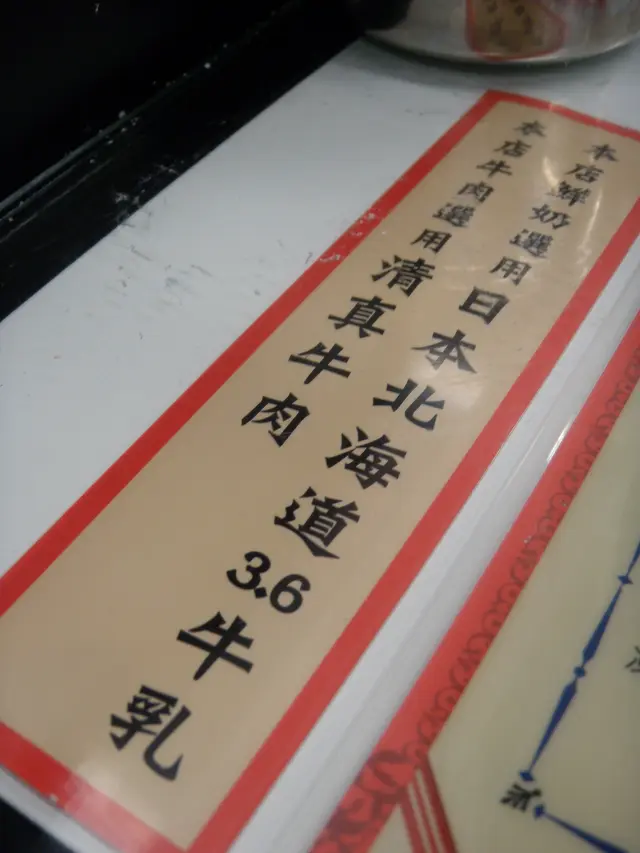 本店鮮奶選用日本北海道3.6牛乳
本店牛肉選用清真牛肉